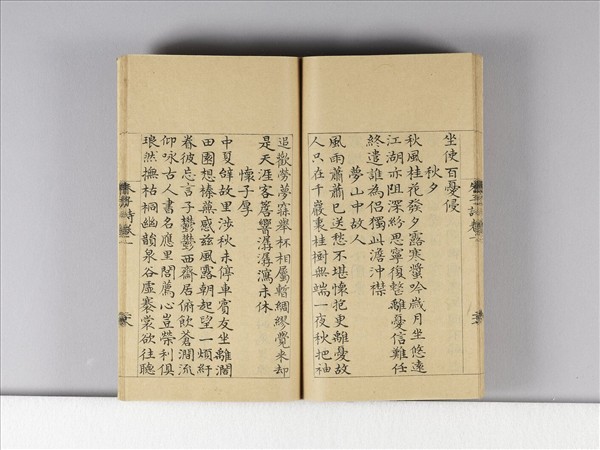 坐使百憂侵
秋夕
秋風桂花發夕露寒螿吟歲月坐悠遠
江湖亦阻深紛思寧復整離憂信難任
終遣誰為侶獨此澹沖襟
夢山中故人
風雨蕭蕭已送愁不堪懷抱更離憂故
人只在千巖裏桂樹無端一夜秋把袖
追歡勞夢寐舉杯相屬暫綢繆覺來却
是天涯客簷響潺潺瀉未休
懷子厚
中夏辭故里涉秋未停車賓友坐離闊
田園想榛蕪感茲風露朝起望一煩紆
眷彼忘言子鬱鬱西齋居俯飲蒼澗流
仰咏古人書名應里閭薦心豈榮利俱
琅然撫枯桐幽韻泉谷虛褰裳欲往聽